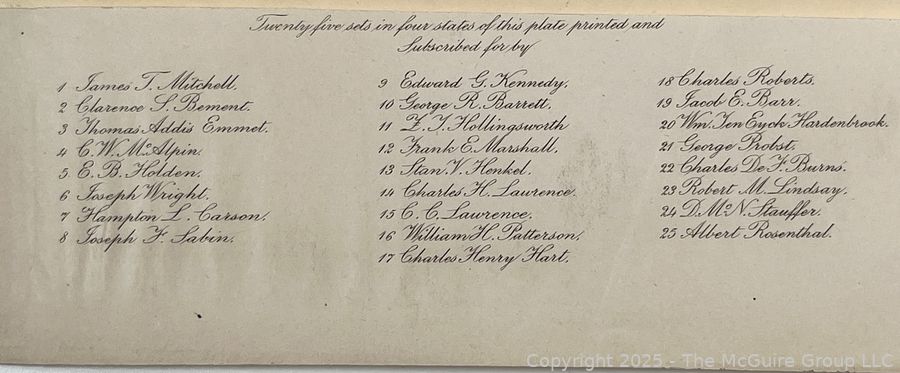 Twenty five sets in four states of this plate printed and
Subscribed for by
1 James T. Mitchell.
2 Clarence S. Bement.
3 Thomas Addis Emmet.
4 C. W. McAlpin.
5 E. B. Holden.
6 Joseph Wright.
7 Hampton L. Carson.
8 Joseph F. Sabin.
9 Edward G. Kennedy.
10 George R. Barrett.
11 Z. T. Hollingsworth
12 Frank E. Marshall.
13 Stan. V. Henkel.
14 Charles H. Lawrence.
15 C. C. Lawrence.
16 William H. Patterson.
17 Charles Henry Hart.
18 Charles Roberts.
19 Jacob E. Barr.
20 Wm. Ten Eyck Hardenbrook.
21 George Probst.
22 Charles De F. Burns.
23 Robert M. Lindsay.
24 D. McN. Stauffer.
25 Albert Rosenthal.
Copyright 2025 - The McGuire Group LLC